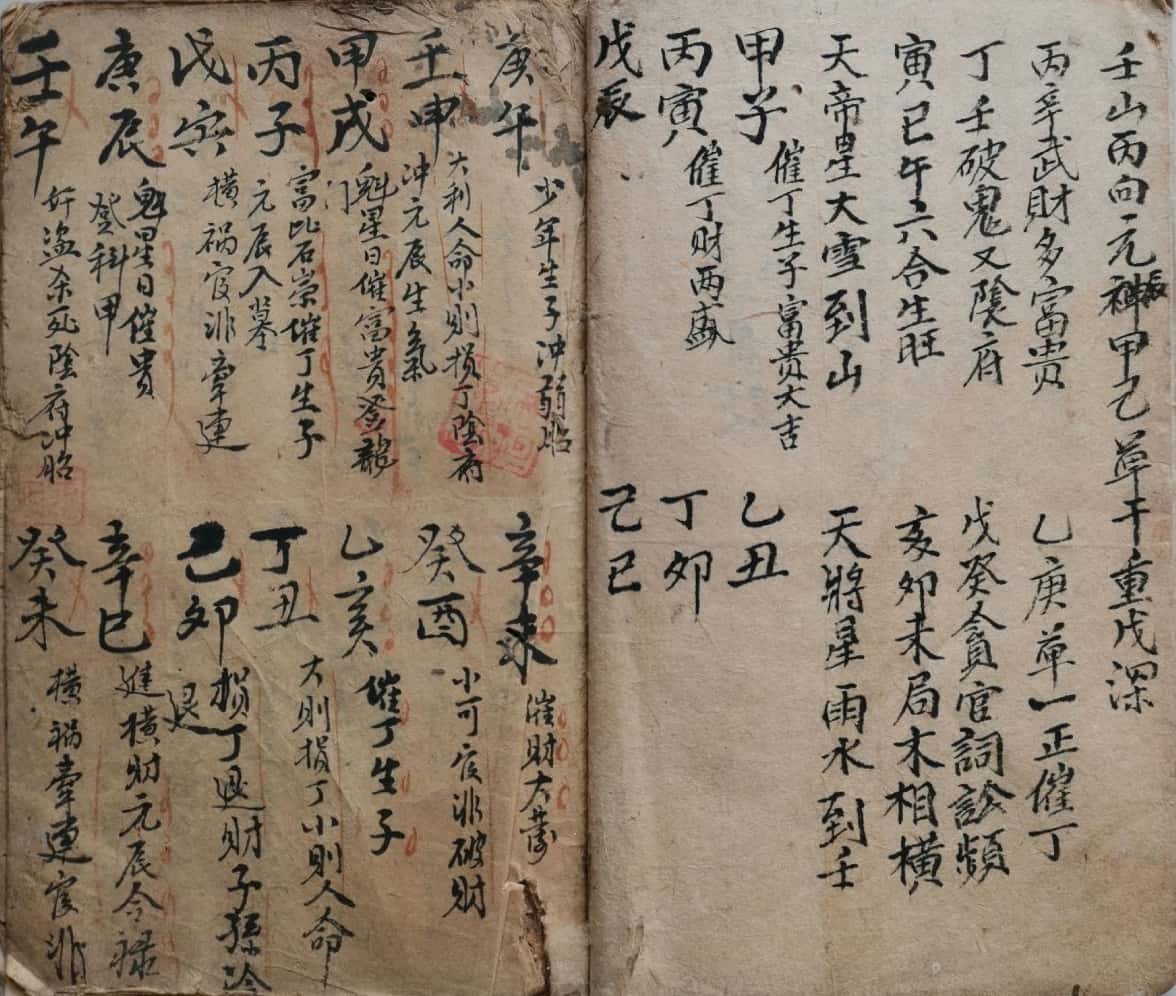 壬山丙向元神甲己單干重戊深
辰
丙辛武財多富贵 乙庚單一正催丁
丁壬破鬼又陰府 戊癸貪官詞訟頻
寅巳午六合生旺 亥卯未局木相橫
天帝星大雪到山 天將星雨水到壬
甲子 催丁生子富貴大吉
乙丑
丙寅 催丁财两盛
丁卯
戊辰
己巳
庚午 少年生子沖弱胎
辛未 催財大
壬申 大利人命小則損丁陰府
沖元辰生氣
癸酉 小可官非破财
甲戌 魁星日催富貴登龍
门
乙亥 催丁生子
丙子 富比石崇催丁生子
元辰入墓
丁丑 大則損丁小則人命
戊寅 橫禍官非牽連
己卯 損丁退财子孫冷
退
庚辰 魁星日催贵
登科甲
辛巳 進橫财元辰合禄
壬午 奸盜杀死陰府冲胎
癸未 橫禍牽連官非